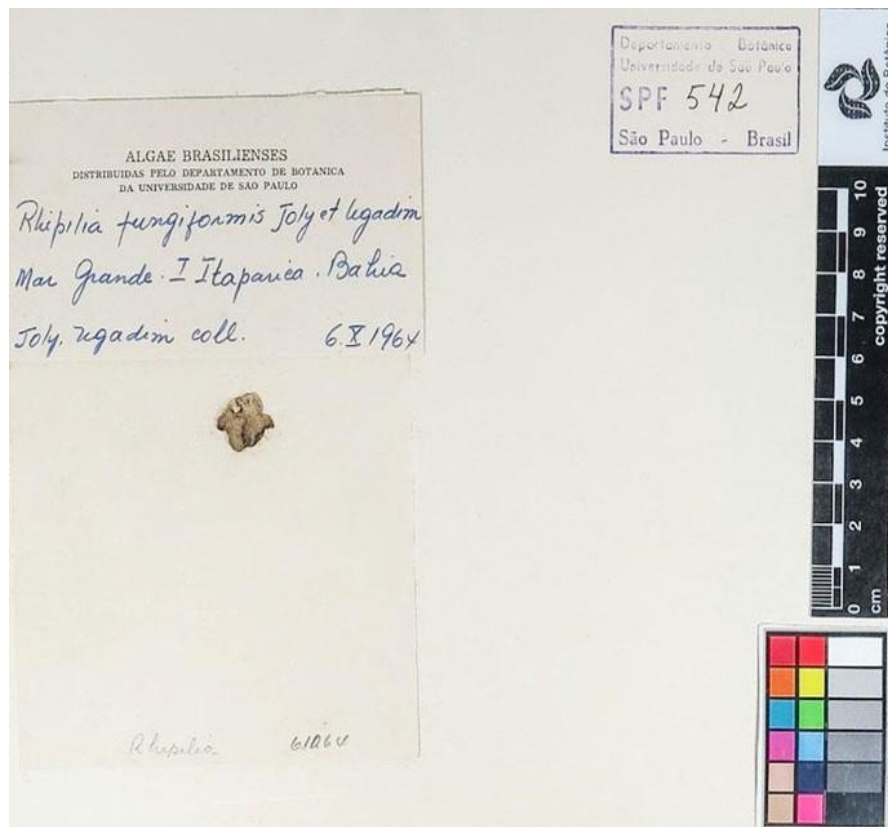 Departamento Botânica
Universidade de São Paulo
SPF 542
São Paulo - Brasil
ALGAE BRASILIENSES
DISTRIBUIDAS PELO DEPARTAMENTO DE BOTANICA
DA UNIVERSIDADE DE SAO PAULO
Rhipilia fungiformis Joly et Ugadim
Mar Grande. I Itaparica. Bahia
Joly, Ugadim coll. 6.X.1964
Rhipilia 61064
copyright reserved
10
9
8
7
6
5
4
3
2
1
0
cm